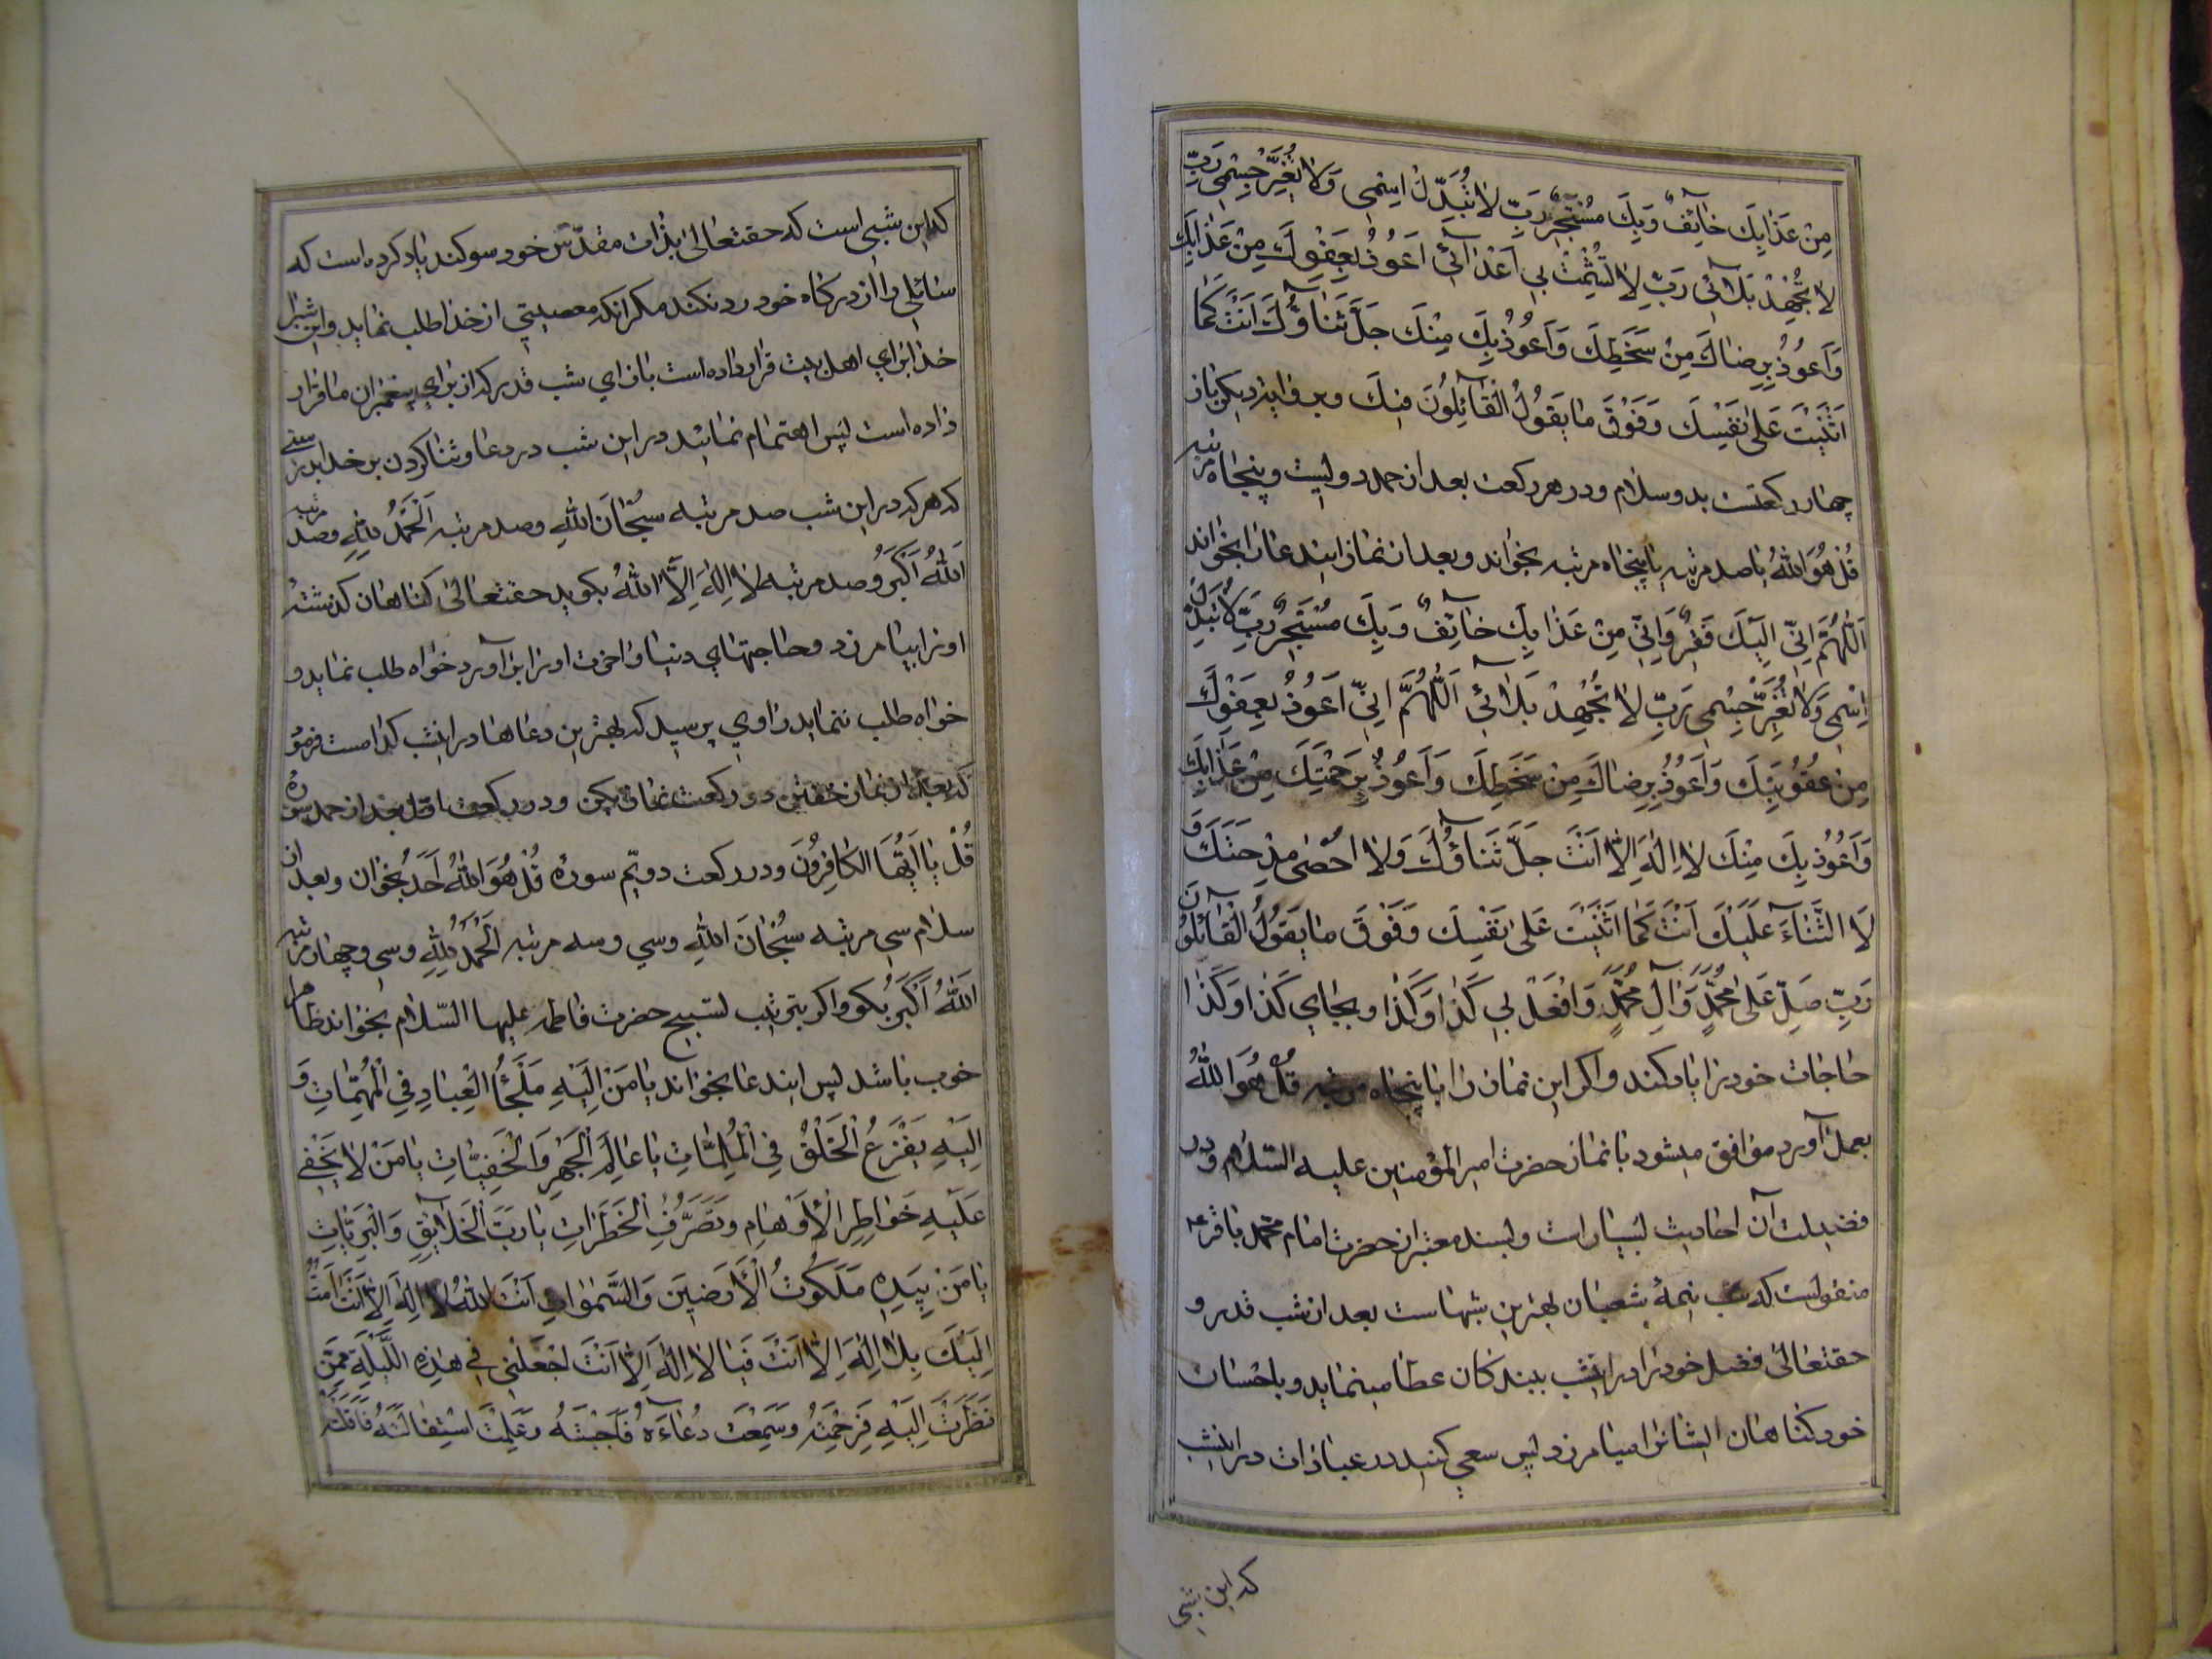 مِنْ عَذَابِكَ خَائِفٌ وَبِكَ مُسْتَجِيرٌ رَبِّ لَا تُبَدِّلْ اِسْمِي وَلَا تُغَيِّرْ جِسْمِي رَبِّ
لَا تُجْهِدْ بَلَائِي رَبِّ لَا تُشْمِتْ بِي اَعْدَائِي اَعُوذُ بِعَفْوِكَ مِنْ عَذَابِكَ
وَاَعُوذُ بِرِضَاكَ مِنْ سَخَطِكَ وَاَعُوذُ بِكَ مِنْكَ جَلَّ ثَنَاؤُكَ اَنْتَ كَمَا
اَثْنَيْتَ عَلَى نَفْسِكَ وَفَوْقَ مَا يَقُولُ الْقَائِلُونَ فِيكَ وبروایة دیکر نماز
چهار رکعتست بدو سلام ودر هر رکعت بعد از حمد دویست وپنجاه مرتبه
قُلْ هُوَ اللهُ یا صد مرتبه یا پنجاه مرتبه بخواند وبعد از نماز ایندعا را بخواند
اَللّهُمَّ اِنِّي اِلَيْكَ فَقِيرٌ وَاِنِّي مِنْ عَذَابِكَ خَائِفٌ وَبِكَ مُسْتَجِيرٌ رَبِّ لَا تُبَدِّلْ
اِسْمِي وَلَا تُغَيِّرْ جِسْمِي رَبِّ لَا تُجْهِدْ بَلَائِي اَللّهُمَّ اِنِّي اَعُوذُ بِعَفْوِكَ
مِنْ عُقُوبَتِكَ وَاَعُوذُ بِرِضَاكَ مِنْ سَخَطِكَ وَاَعُوذُ بِرَحْمَتِكَ مِنْ عَذَابِكَ
وَاَعُوذُ بِكَ مِنْكَ لَا اِلٰهَ اِلَّا اَنْتَ جَلَّ ثَنَاؤُكَ وَلَا اُحْصِي مِدْحَتَكَ وَ
لَا الثَّنَاءَ عَلَيْكَ اَنْتَ كَمَا اَثْنَيْتَ عَلَى نَفْسِكَ وَفَوْقَ مَا يَقُولُ الْقَائِلُونَ
رَبِّ صَلِّ عَلَى مُحَمَّدٍ وَآلِ مُحَمَّدٍ وَافْعَلْ بِي كَذَا وَكَذَا وبجای كَذَا وَكَذَا
حاجات خود را یاد کند واکر این نماز را با پنجاه مرتبه قُلْ هُوَ اللهُ
بعمل آورد موافق میشود با نماز حضرت امیر المؤمنین علیه السّلام ودر
فضیلت آن احادیث بسیار است وبسند معتبر از حضرت امام محمّد باقر ع
منقولست که شب نیمهٔ شعبان بهترین شبهاست بعد از شب قدر و
حقتعالی فضل خود را در اینشب ببندکان عطا مینماید وباحسان
خود کناهان ایشانرا میامرزد پس سعی کنید در عبادات در اینشب
که این شبی
که این شبی است که حقتعالی بذات مقدّس خود سوکند یاد کرده است که
سائلی را از درکاه خود رد نکند مکر انکه معصیتی از خدا طلب نماید واین شبرا
خدا برای اهل بیت قرار داده است بازای شب قدر که از برای پیغمبران ما قرار
داده است پس اهتمام نمائید در این شب در دعا وثنا کردن بر خدا بدرستی
که هر که در این شب صد مرتبه سُبْحَانَ اللهِ وصد مرتبه اَلْحَمْدُ لِلّهِ وصد مرتبه
اَللهُ اَكْبَرُ وصد مرتبه لَا اِلٰهَ اِلَّا اللهُ بکوید حقتعالی کناهان کذشته
اورا بیامرزد وحاجتهای دنیا واخرت اورا برآورد خواه طلب نماید و
خواه طلب ننماید راوی پرسید که بهترین دعاها در اینشب کدامست فرمود
که بعد از نماز خفتن دو رکعت نماز بکن ودر رکعت اوّل بعد از حمد سورهٔ
قُلْ يَا اَيُّهَا الْكَافِرُونَ ودر رکعت دویّم سوره قُلْ هُوَ اللهُ اَحَدٌ بخوان وبعد از
سلام سی مرتبه سُبْحَانَ اللهِ وسی وسه مرتبه اَلْحَمْدُ لِلّهِ وسی وچهار مرتبه
اَللهُ اَكْبَرُ بکو واکر بترتیب تسبیح حضرت فاطمه علیها السّلام بخواند ظاهرا
خوب باشد پس ایندعا بخواند يَا مَنْ اِلَيْهِ مَلْجَأُ الْعِبَادِ فِي الْمُهِمَّاتِ وَ
اِلَيْهِ يَفْزَعُ الْخَلْقُ فِي الْمُلِمَّاتِ يَا عَالِمَ الْجَهْرِ وَالْخَفِيَّاتِ يَا مَنْ لَا يَخْفَى
عَلَيْهِ خَوَاطِرُ الْاَوْهَامِ وَتَصَرُّفُ الْخَطَرَاتِ يَا رَبَّ الْخَلَائِقِ وَالْبَرِيَّاتِ
يَا مَنْ بِيَدِهِ مَلَكُوتُ الْاَرَضِينَ وَالسَّمٰوَاتِ اَنْتَ اللهُ لَا اِلٰهَ اِلَّا اَنْتَ اَمُتُّ
اِلَيْكَ بِلَا اِلٰهَ اِلَّا اَنْتَ فَيَا لَا اِلٰهَ اِلَّا اَنْتَ اجْعَلْنِي فِي هٰذِهِ اللَّيْلَةِ مِمَّنْ
نَظَرْتَ اِلَيْهِ فَرَحِمْتَهُ وَسَمِعْتَ دُعَاءَهُ فَاَجَبْتَهُ وَعَلِمْتَ اسْتِقَالَتَهُ فَاَقَلْتَهُ